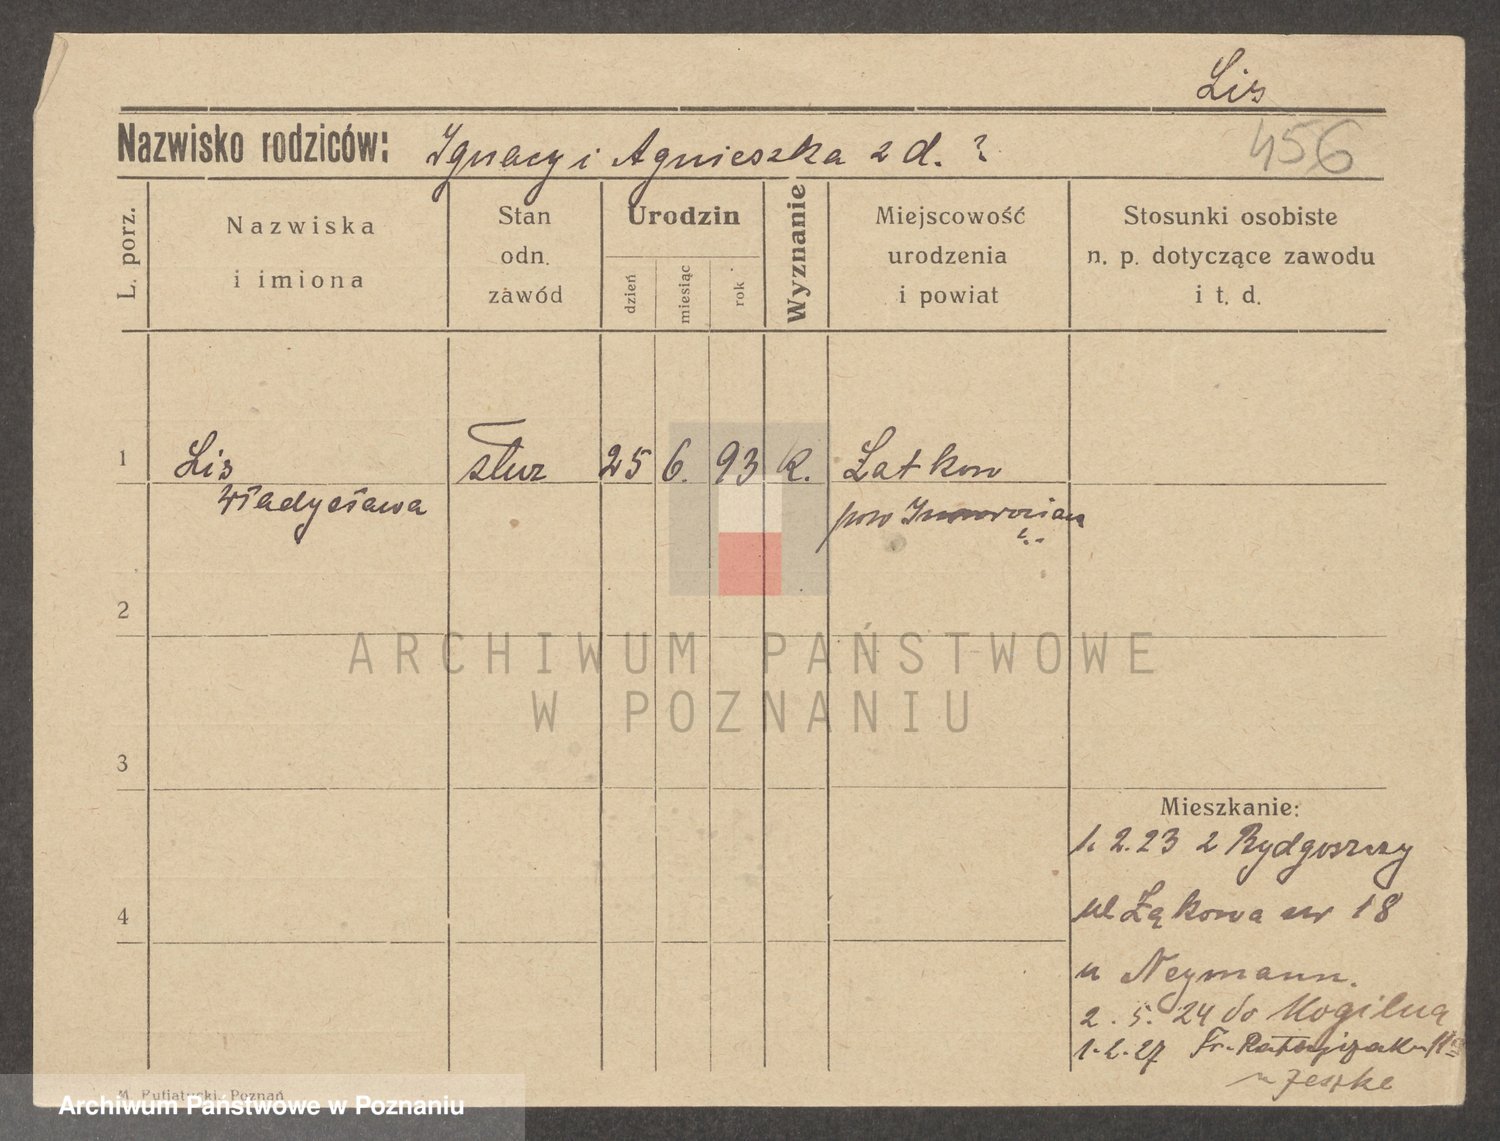 Lis
Nazwisko rodziców: Ignacy i Agnieszka z d. ?
456
L. porz.
Nazwiska
i imiona
Stan
odn.
zawód
Urodzin
dzień
miesiąc
rok
Wyznanie
Miejscowość
urodzenia
i powiat
Stosunki osobiste
n. p. dotyczące zawodu
i t. d.
1
Lis
Władysława
służ
25
6.
93
k.
Łatkow
pow
2
3
4
Mieszkanie:
1. 2. 23 z Bydgoszczy
ul Łąkowa nr 18
u Neymann.
2. 5. 24 do Mogilna
1. 2. 27 Fr. Ratajczaka
u Jeszke
ARCHIWUM PAŃSTWOWE
W POZNANIU
M. Putiatycki, Poznań
Archiwum Państwowe w Poznaniu